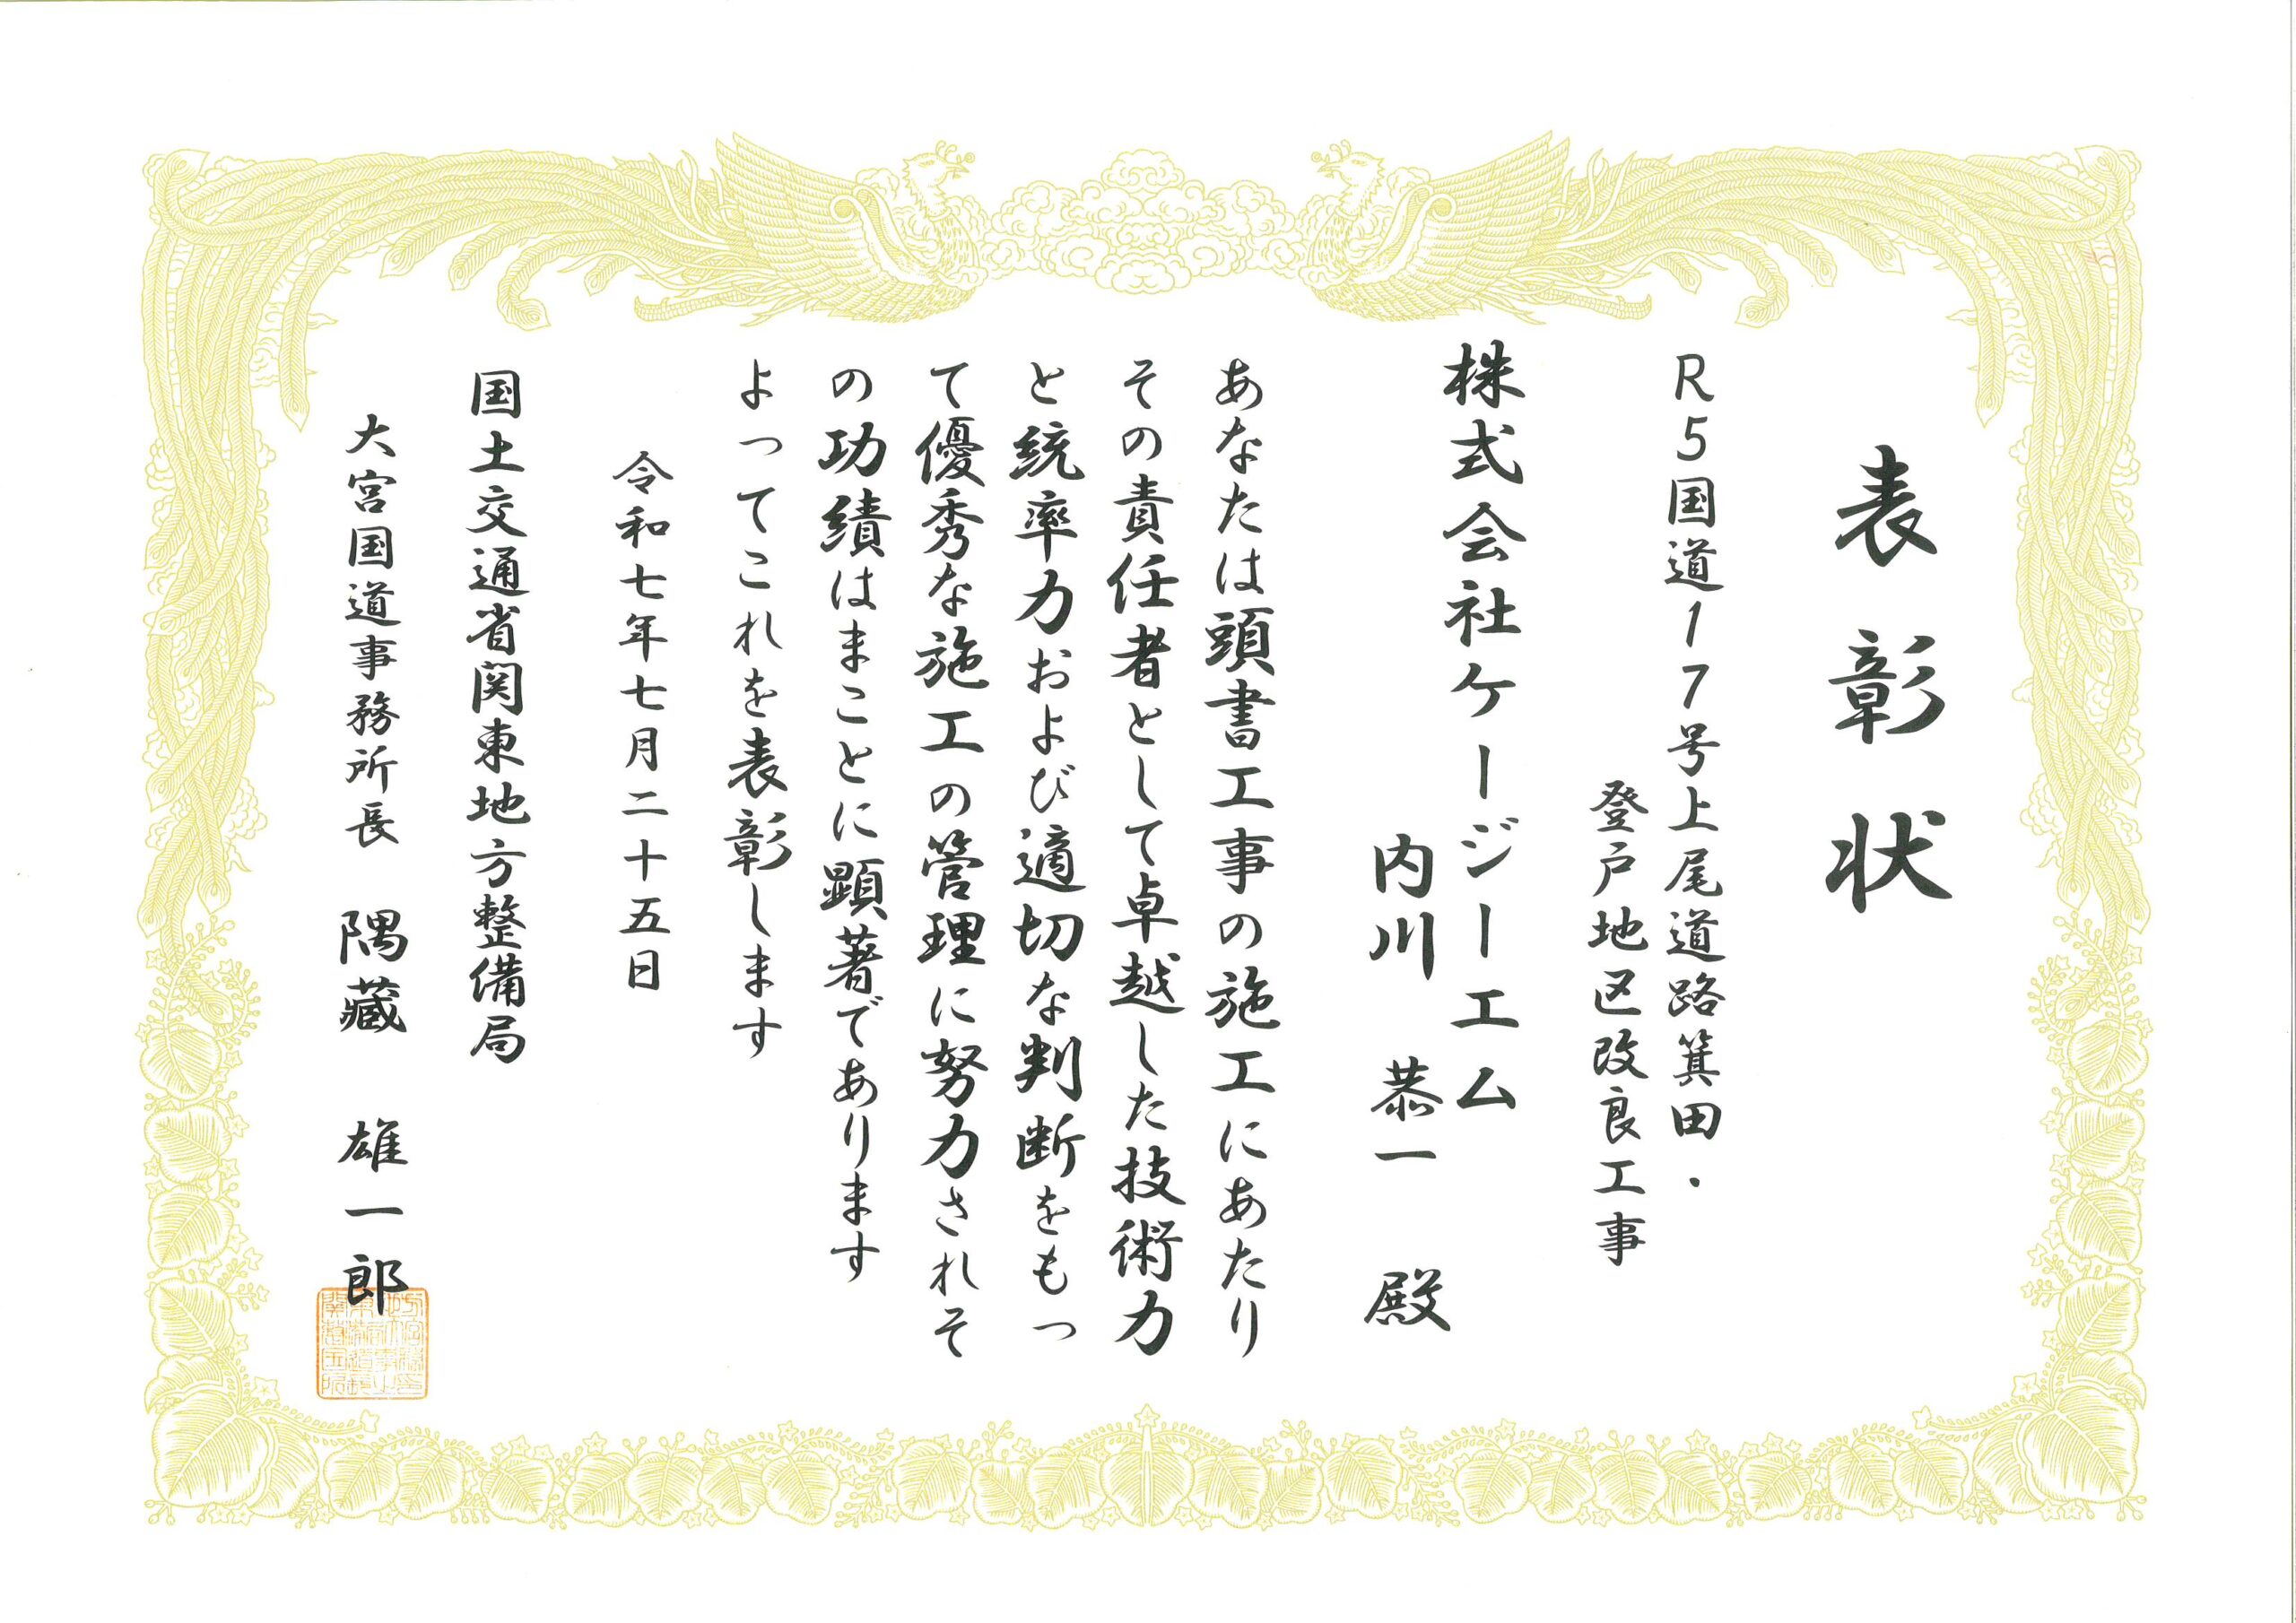 表彰状
R5国道17号上尾道路箕田・
登戸地区改良工事
株式会社ケージーエム
内川 恭一 殿
あなたは頭書工事の施工にあたり
その責任者として卓越した技術力
と統率力および適切な判断をもっ
て優秀な施工の管理に努力されそ
の功績はまことに顕著であります
よってこれを表彰します
令和七年七月二十五日
国土交通省関東地方整備局
大宮国道事務所長 隅藏 雄一郎